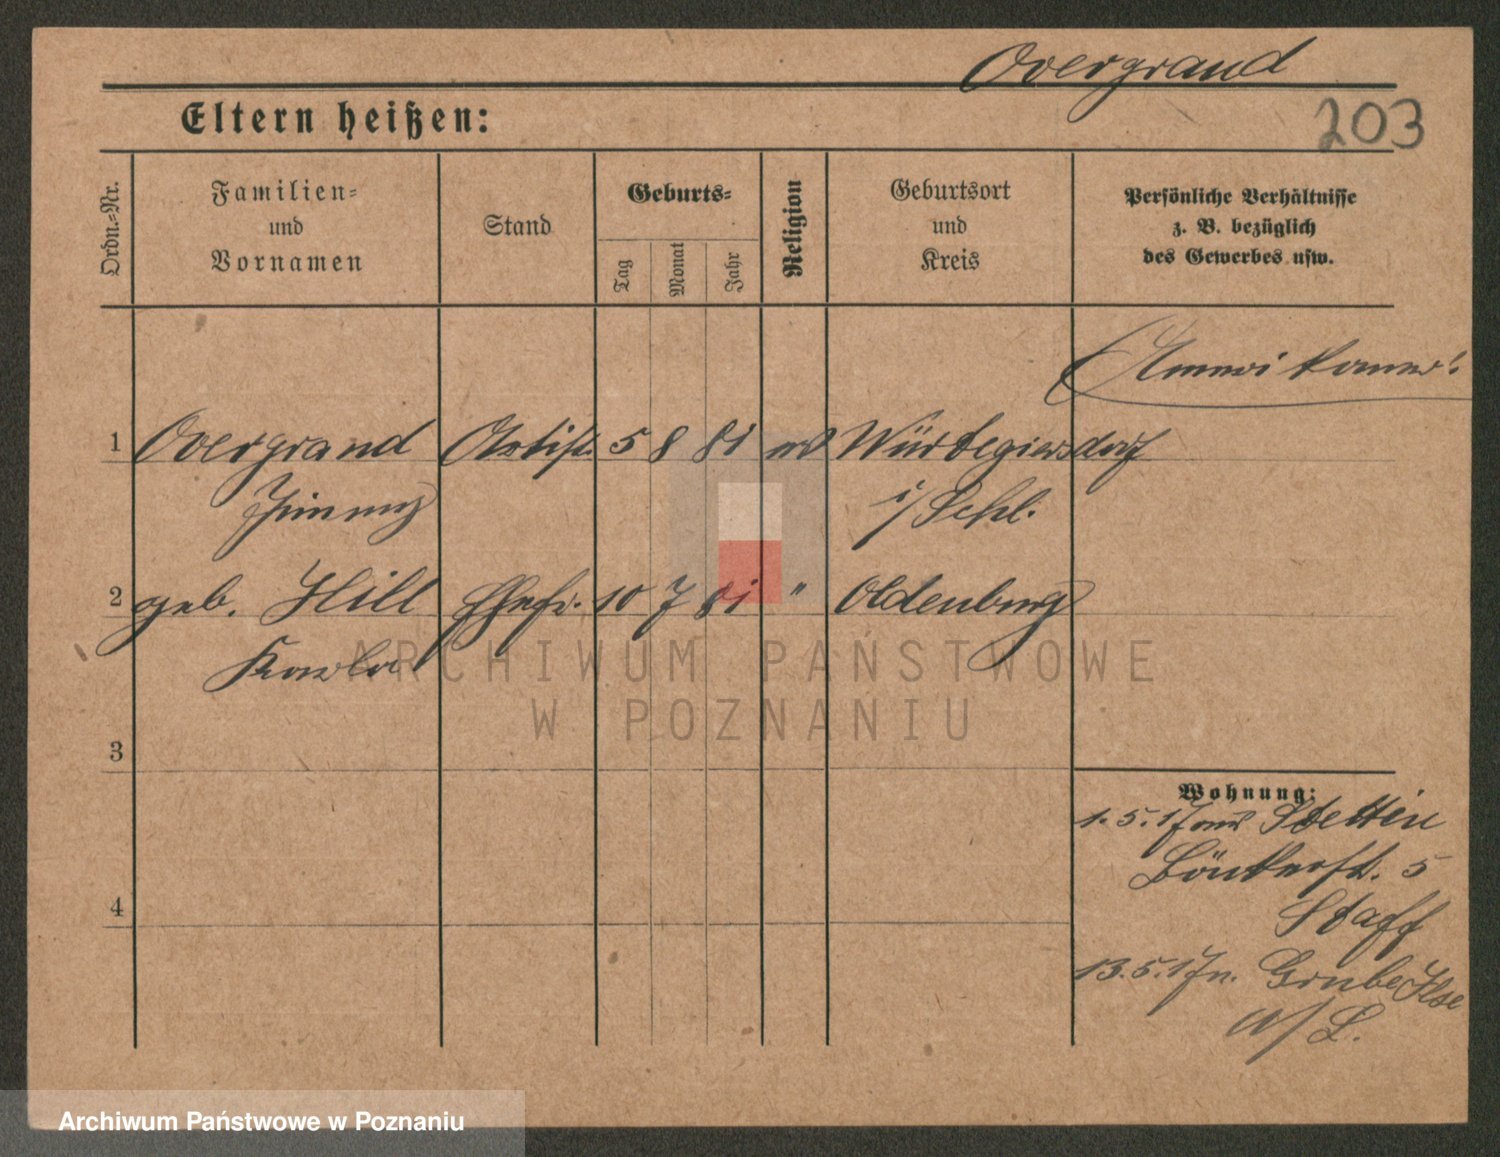 Overgrand
203
Eltern heißen:
Ordn.=Nr.
Familien=
und
Vornamen
Stand
Geburts=
Tag
Monat
Jahr
Religion
Geburtsort
und
Kreis
Persönliche Verhältnisse
z. B. bezüglich
des Gewerbes usw.
Amerikaner!
1 Overgrand Artist. 5 8 81 Würtegiersdorf
Jimmy i/Schl.
2 geb. Hill Ehefr. 10 7 81 " Oldenburg
Karla
3
Wohnung:
1. 5. 17 aus Stettin
5
4
Staff
13. 5. 17 n. Grube Ilse
N/L.
ARCHIWUM PAŃSTWOWE
W POZNANIU
Archiwum Państwowe w Poznaniu